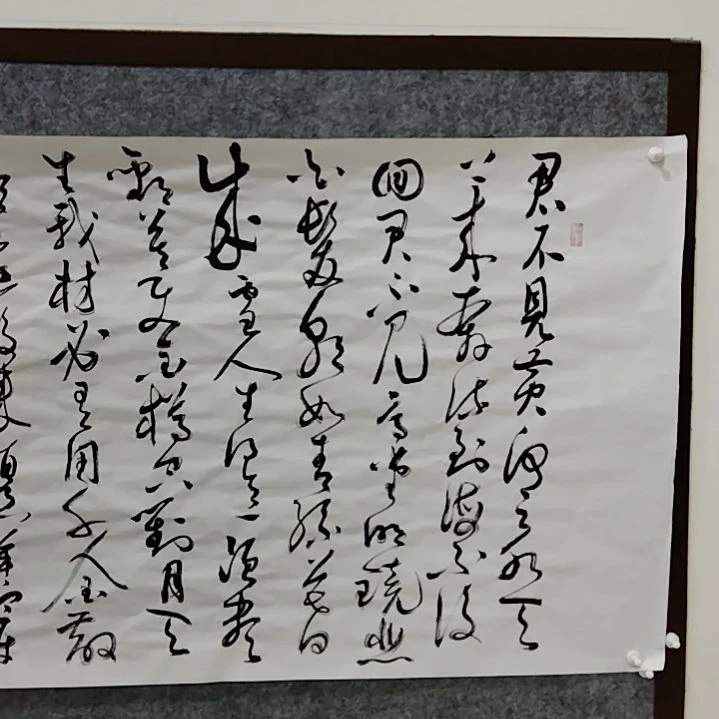 君不見黃河之水天
上来奔流到海不復
回君不見高堂明鏡悲
白髮朝如青絲暮
成雪人生得意須盡
歡莫使金樽空對月天
生我材必有用千金散